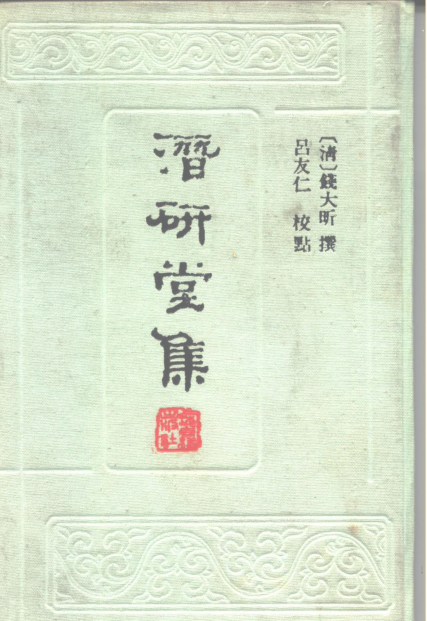 〔清〕錢大昕 撰
呂友仁 校點
潛研堂集